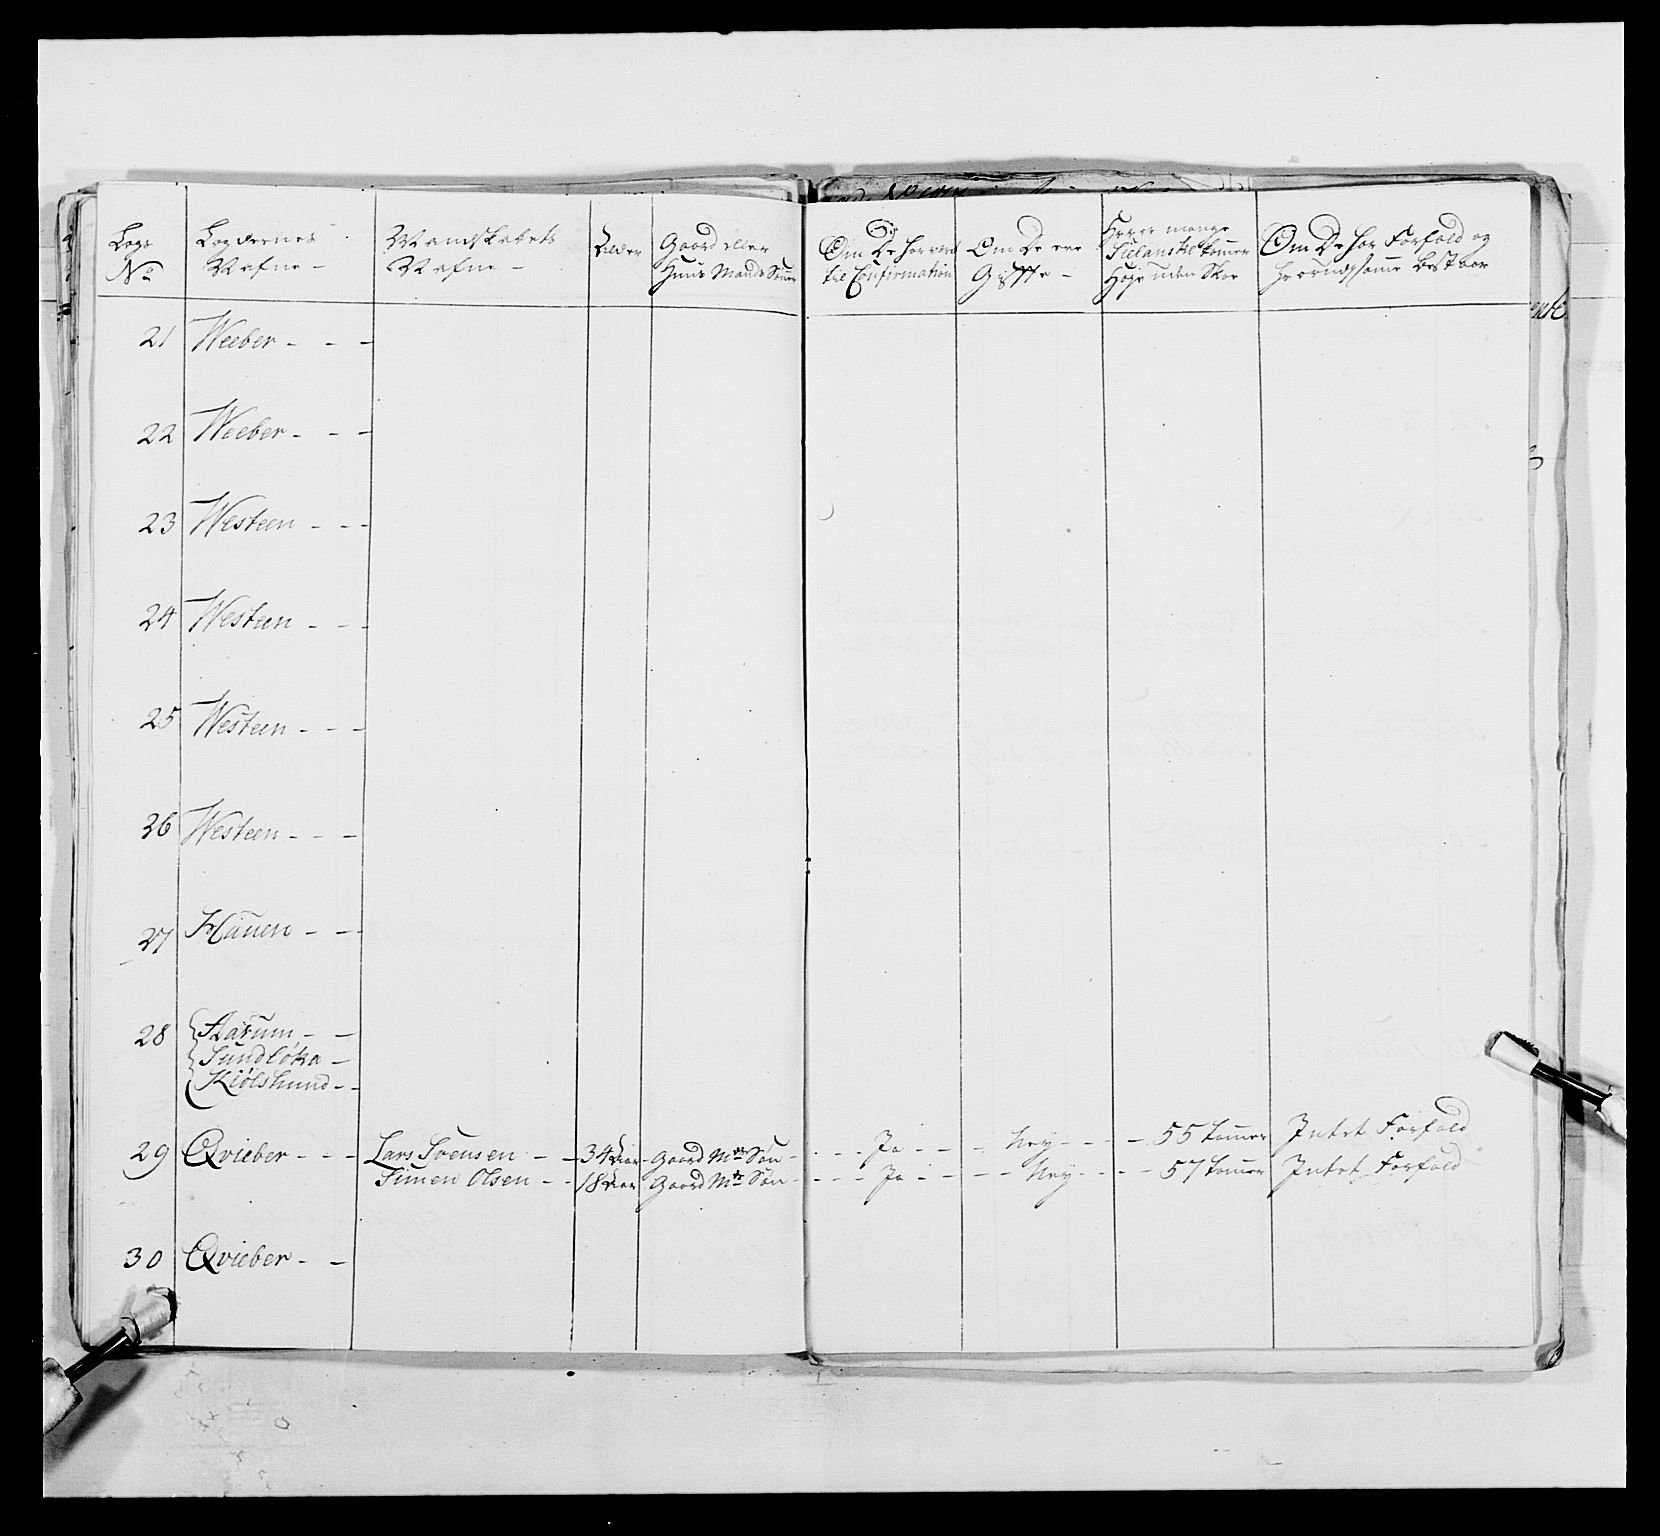 Legs No
Legdernes Nafne -
Mandskabets Nafne -
Alder
Gaard eller Huus Mands Sönner
Om De har været til Confirmation
Om De ere Giffte -
Hvor mange Sielanske tommer Höje uden Skoe
Om De har Forfald og hvorudj samme bestaar
21 Weeber - - -
22 Weeber - - -
23 Westeen - - -
24 Westeen - - -
25 Westeen - - -
26 Westeen - - -
27 Hauen - - -
28 Aarum, - -
Sundlöka -
Kiölshund - -
29 Qvieber - - - Lars Svensen - - 34 Aar - Gaard Mds Søn - - - - Ja - - - - Ney - - - - 55 tommer Intet Forfald
Simen Olsen - - 18 Aar Gaard Mds Søn - - - - Ja - - - - Ney - - - - 57 tommer Intet Forfald
30 Qvieber - -